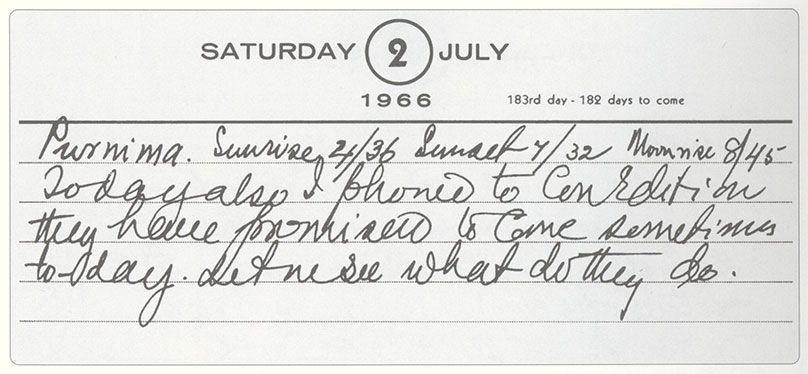 SATURDAY 2 JULY
1966
183rd day - 182 days to come
Purnima. Sunrise 4/36 Sunset 7/32 Moonrise 8/45
Today also I phoned to Con Edition
they have promised to Come sometimes
to-day. Let me see what do they do.